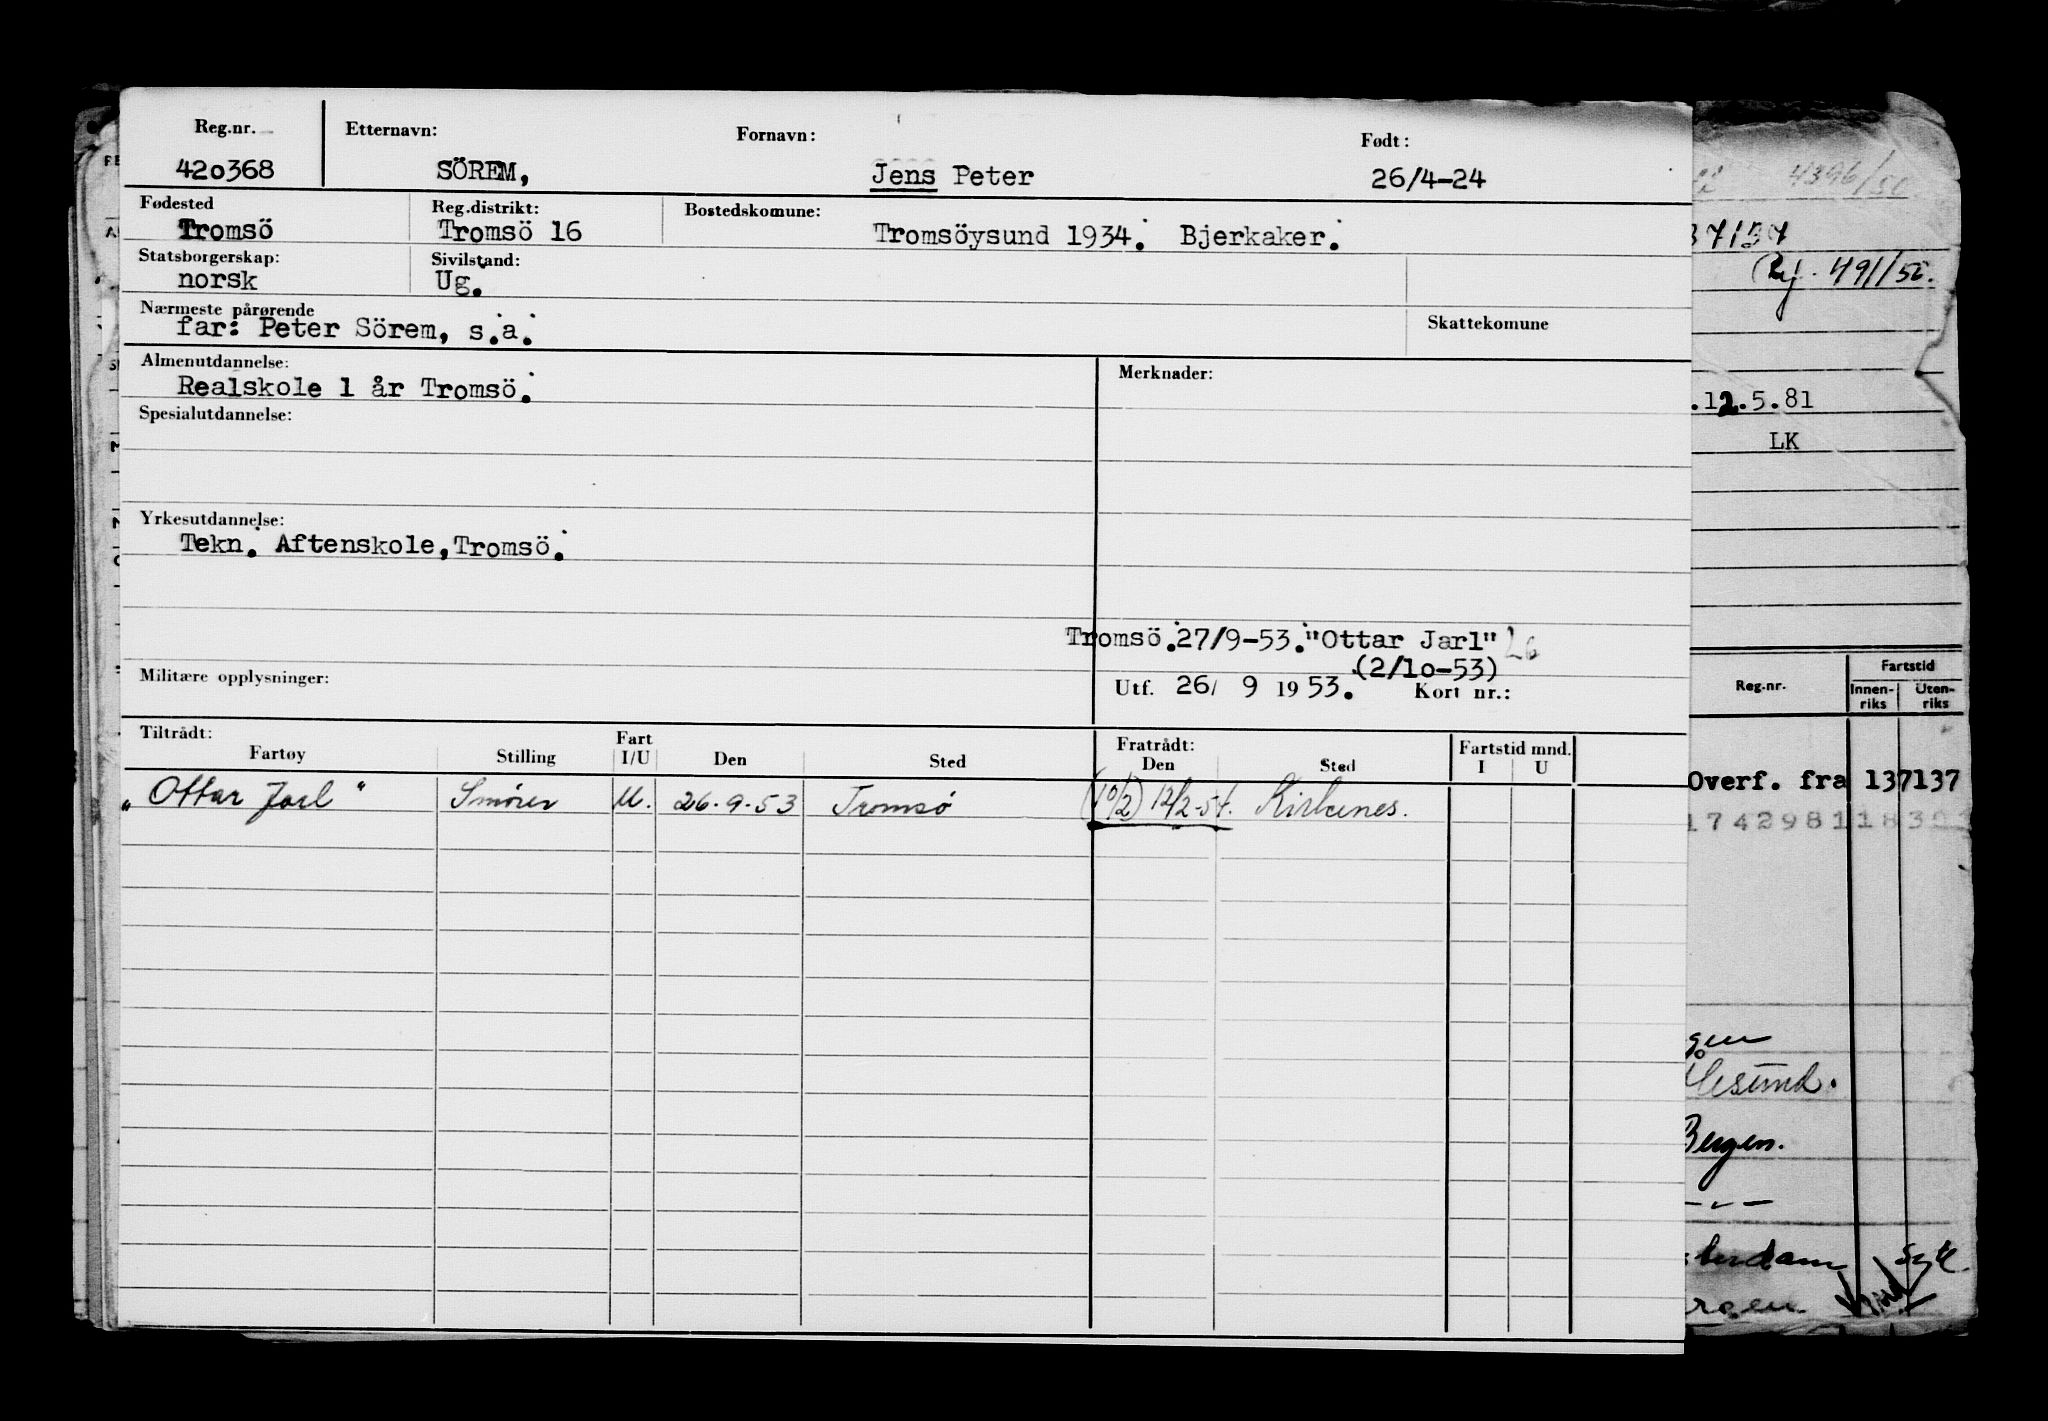 Reg.nr. Etternavn: Fornavn: Født:
420368 SÖREM, Jens Peter 26/4-24
Fødested Reg.distrikt: Bostedskomune:
Tromsö Tromsö 16 Tromsöysund 1934. Bjerkaker.
Statsborgerskap: Sivilstand:
norsk Ug.
Nærmeste pårørende Skattekomune
far: Peter Sörem, s.a.
Almenutdannelse: Merknader:
Realskole 1 år Tromsö.
Spesialutdannelse:
Yrkesutdannelse:
Tekn. Aftenskole, Tromsö.
Tromsö.27/9-53."Ottar Jarl" 26
(2/10-53)
Militære opplysninger: Utf. 26/ 9 1953. Kort nr.:
Tiltrådt: Fratrådt: Fartstid mnd.
Fartøy Stilling Fart I/U Den Sted Den Sted I U
"Ottar Jarl" Smører U. 26.9.53 Tromsø (10/2) 12/2-54. Kirkenes.
4396/50
37137
491/50.
.12.5.81
LK
Reg.nr. Fartstid
Innen-riks Uten-riks
Overf. fra 137137
Ålesund.
Bergen.